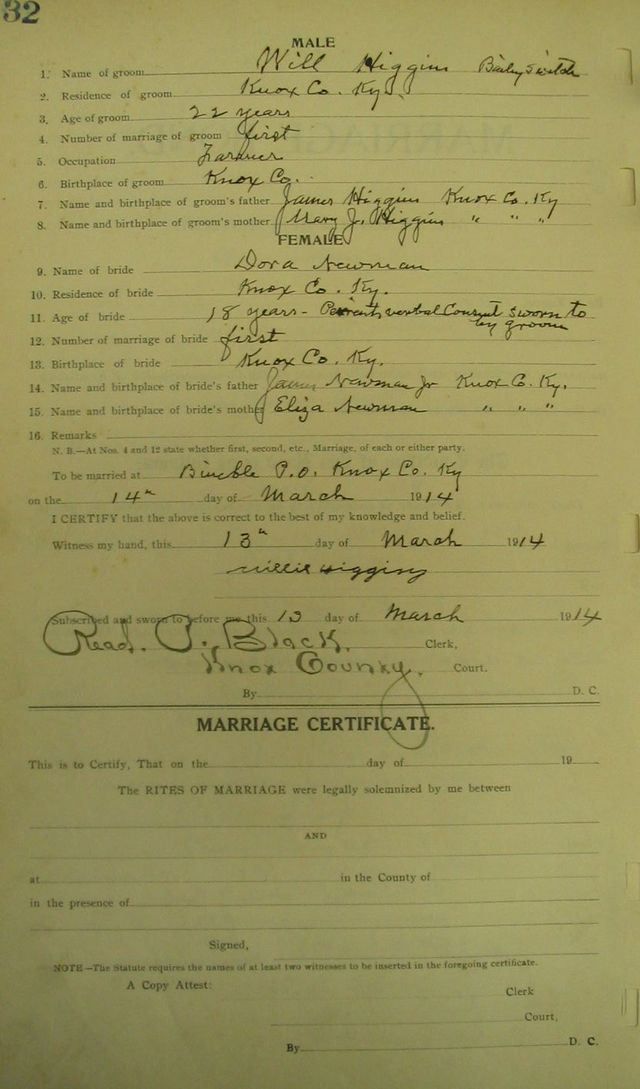 32
MALE
1. Name of groom Will Higgins Baily Switch
2. Residence of groom Knox Co. Ky.
3. Age of groom 22 years
4. Number of marriage of groom first
5. Occupation Farmer
6. Birthplace of groom Knox Co.
7. Name and birthplace of groom's father James Higgins Knox Co. Ky
8. Name and birthplace of groom's mother Mary J. Higgins " " "
FEMALE
9. Name of bride Dora Newman
10. Residence of bride Knox Co. Ky.
11. Age of bride 18 years - Parents verbal Consent sworn to
by groom
12. Number of marriage of bride first
13. Birthplace of bride Knox Co. Ky.
14. Name and birthplace of bride's father James Newman Jr Knox Co. Ky.
15. Name and birthplace of bride's mother Eliza Newman " " "
16. Remarks
N. B.—At Nos. 4 and 12 state whether first, second, etc., Marriage, of each or either party.
To be married at Bimble P.O. Knox Co. Ky
on the 14th day of March 1914
I CERTIFY that the above is correct to the best of my knowledge and belief.
Witness my hand, this 13th day of March 1914
Willie Higgins
Subscribed and sworn to before me this 13 day of March 1914
Read. P. Black, Clerk,
Knox County, Court.
By D. C.
MARRIAGE CERTIFICATE.
This is to Certify, That on the day of 19
The RITES OF MARRIAGE were legally solemnized by me between
AND
at in the County of
in the presence of
Signed,
NOTE—The Statute requires the names of at least two witnesses to be inserted in the foregoing certificate.
A Copy Attest:
Clerk
Court,
By D. C.